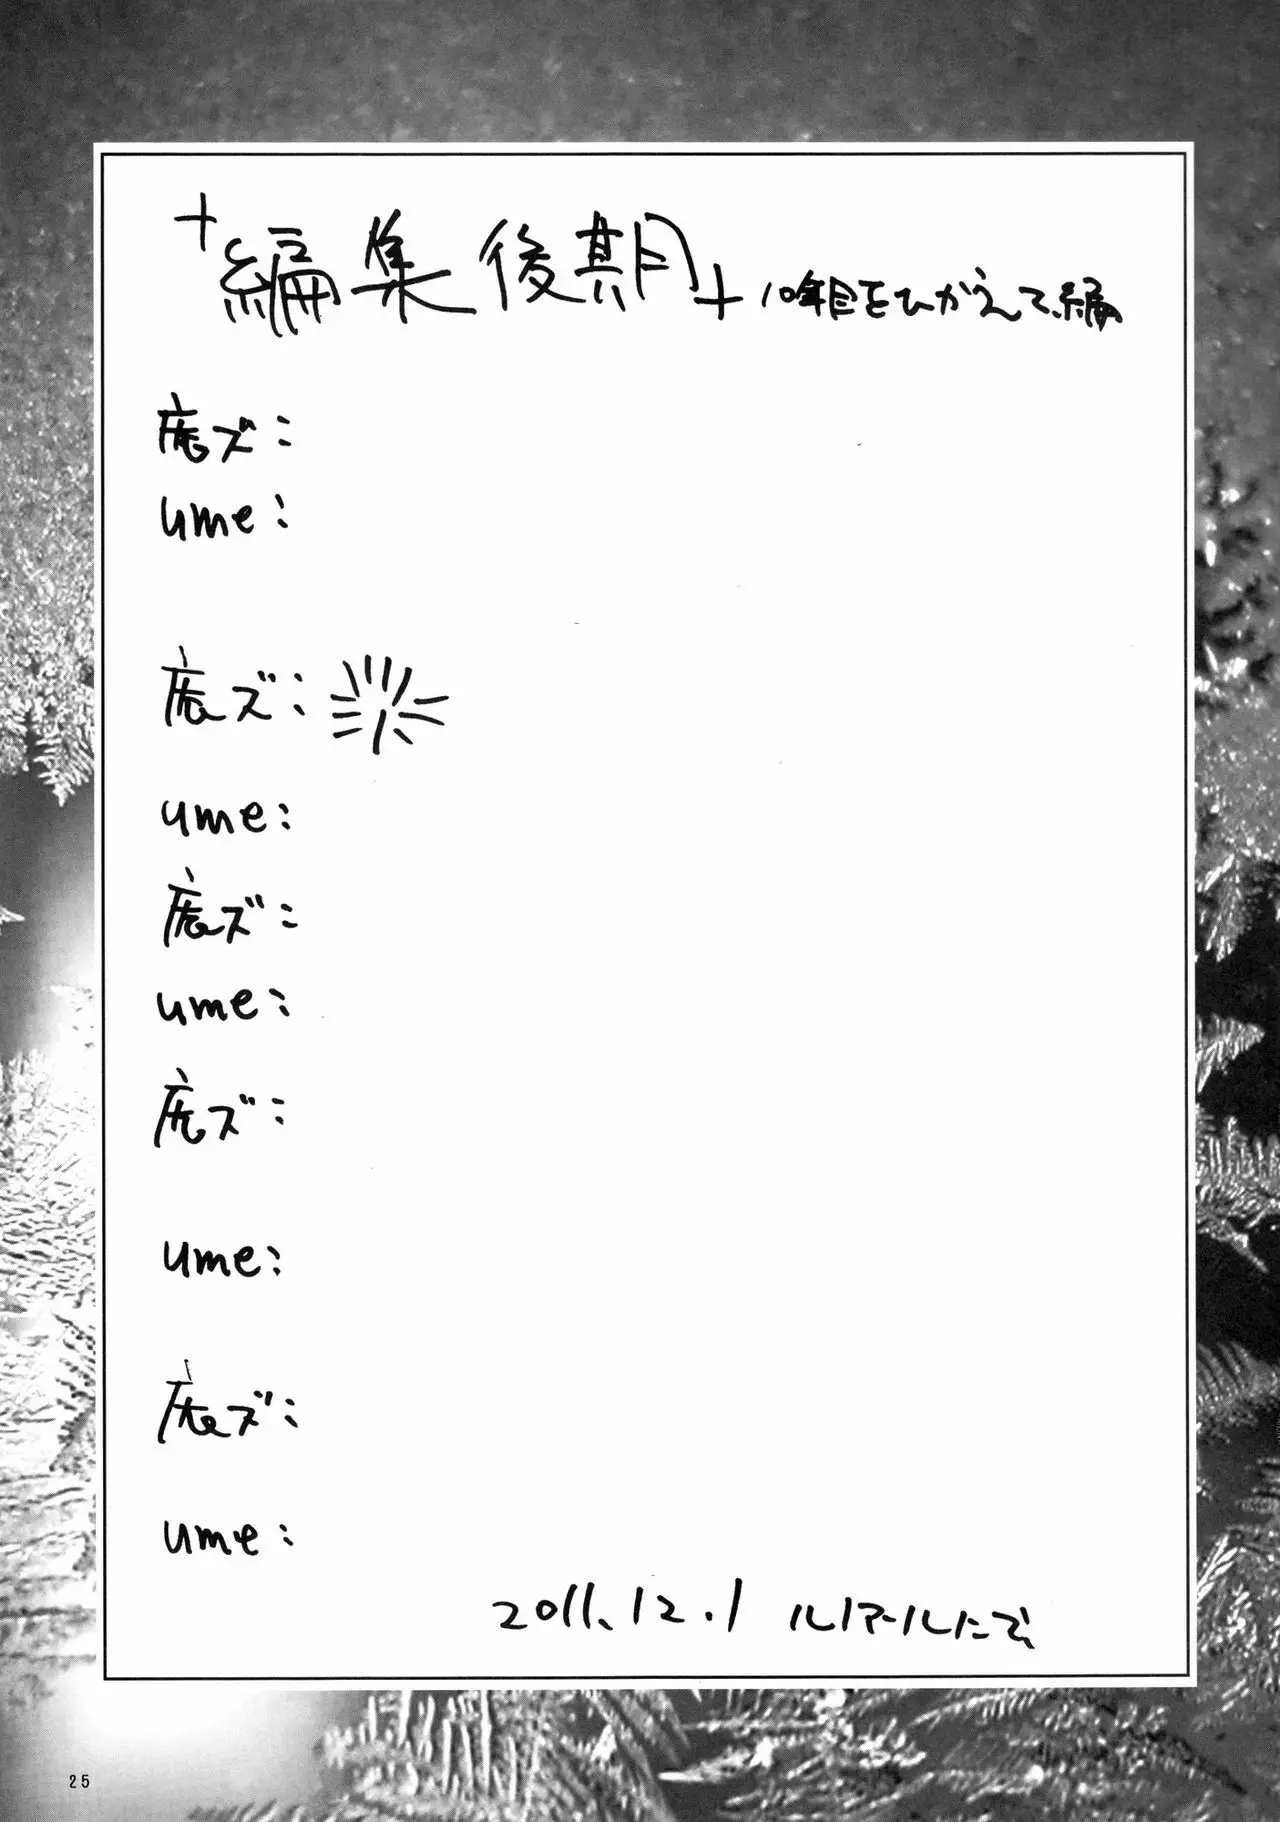 +編集後期+ 10年目をひかえて、編
鹿ズ:
ume:
鹿ズ:
ume:
鹿ズ:
ume:
鹿ズ:
ume:
鹿ズ:
ume:
2011.12.1 ルノアールにて、
25